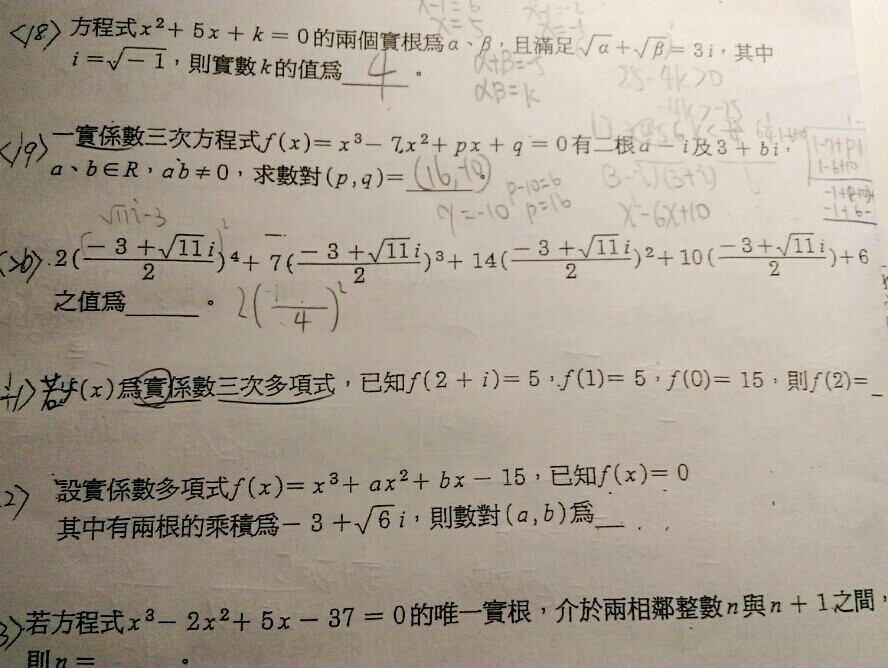 <18> 方程式x²+5x+k=0的兩個實根為α、β,且滿足√α+√β=3i,其中
i=√-1,則實數k的值為 4 。
α+β=-5
αβ=k
25-4k>0
<19> 一實係數三次方程式f(x)=x³-7x²+px+q=0有二根a-i及3+bi,
a、b∈R,ab≠0,求數對(p,q)=(16,-10)。
(3-i)(3+i)
x²-6x+10
p-10=6
p=16
q=-10
√11i-3
<20> 2(\frac{-3+√11i}{2})⁴+7(\frac{-3+√11i}{2})³+14(\frac{-3+√11i}{2})²+10(\frac{-3+√11i}{2})+6
之值為____。
2(\frac{}{4})²
若f(x)為實係數三次多項式,已知f(2+i)=5,f(1)=5,f(0)=15,則f(2)=_
2> 設實係數多項式f(x)=x³+ax²+bx-15,已知f(x)=0
其中有兩根的乘積為-3+√6i,則數對(a,b)為__.
3> 若方程式x³-2x²+5x-37=0的唯一實根,介於兩相鄰整數n與n+1之間,
則n=____。